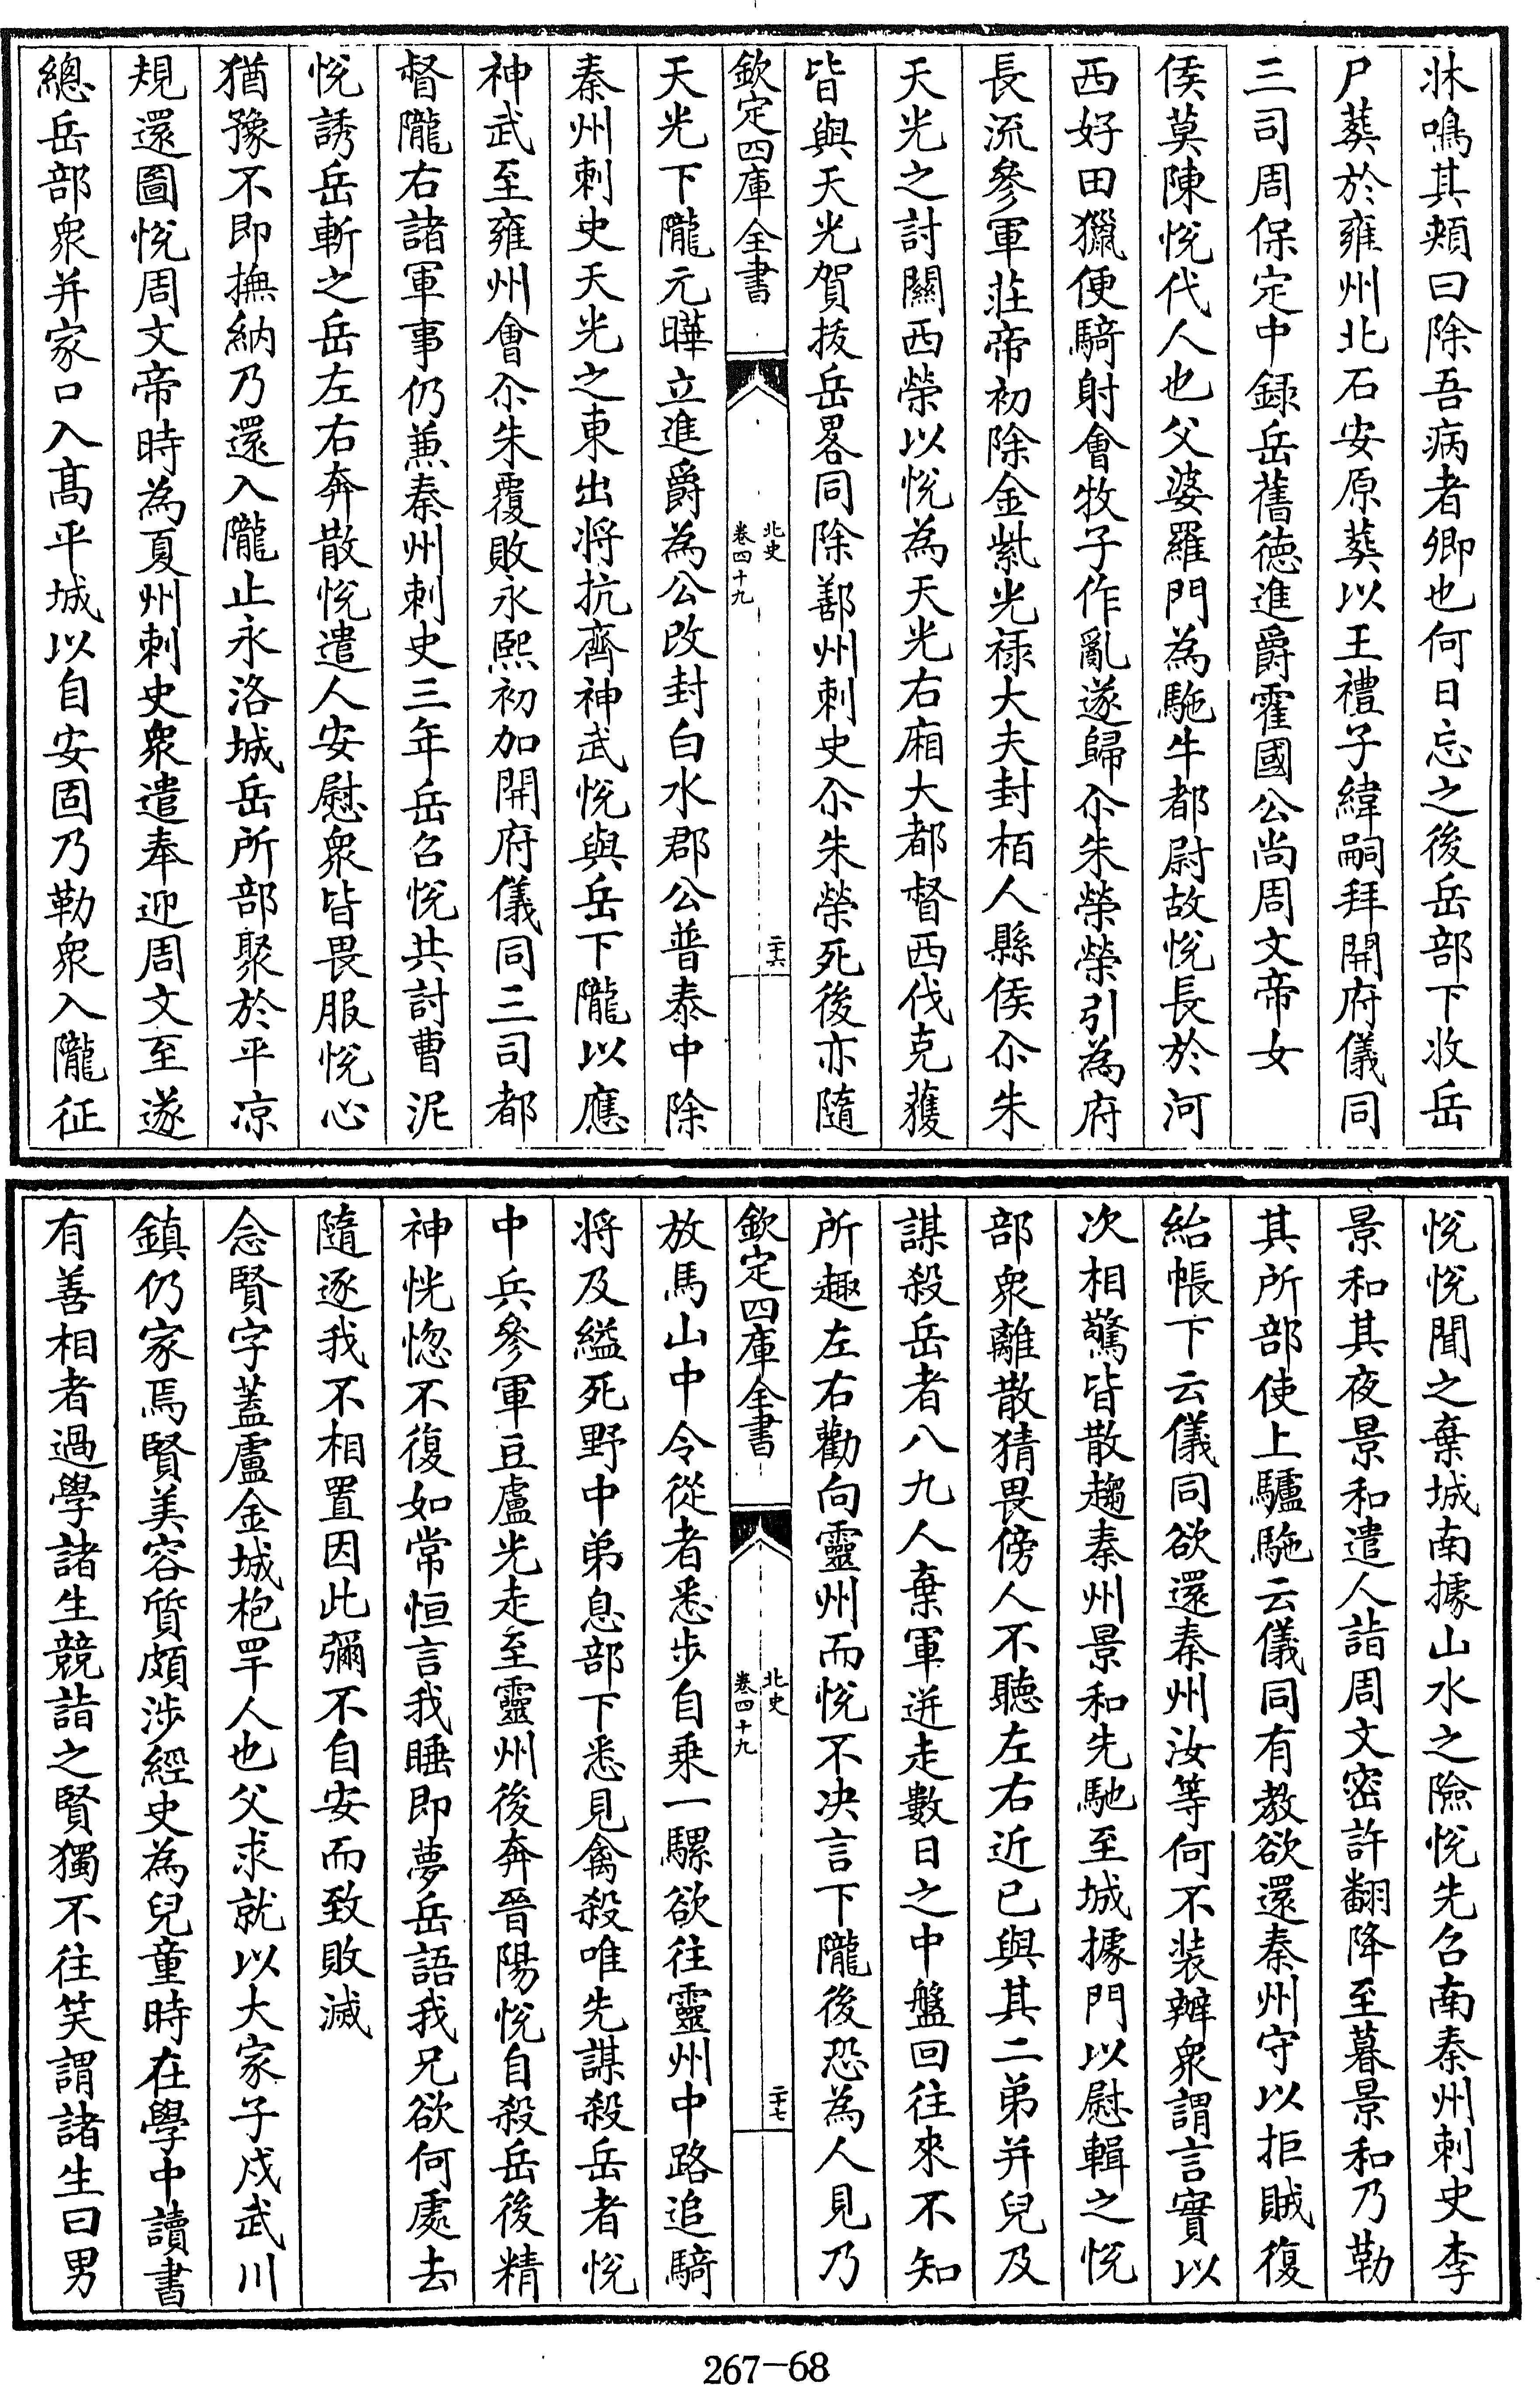 牀鳴其頰曰除吾病者卿也何日忘之後岳部下收岳
尸葬於雍州北石安原葬以王禮子緯嗣拜開府儀同
三司周保定中録岳舊徳進爵霍國公尚周文帝女
侯莫陳悅代人也父婆羅門為駞牛都尉故悅長於河
西好田獵便騎射會牧子作亂遂歸尒朱榮榮引為府
長流參軍莊帝初除金紫光禄大夫封栢人縣侯尒朱
天光之討關西榮以悅為天光右廂大都督西伐克獲
皆與天光賀拔岳畧同除鄯州刺史尒朱榮死後亦隨
欽定四庫全書
北史
卷四十九
二十六
天光下隴元曄立進爵為公改封白水郡公普泰中除
秦州刺史天光之東出将抗齊神武悅與岳下隴以應
神武至雍州會尒朱覆敗永熙初加開府儀同三司都
督隴右諸軍事仍兼秦州刺史三年岳召悅共討曹泥
悅誘岳斬之岳左右奔散悅遣人安慰衆皆畏服悅心
猶豫不即撫納乃還入隴止永洛城岳所部聚於平凉
規還圖悅周文帝時為夏州刺史衆遣奉迎周文至遂
總岳部衆并家口入髙平城以自安固乃勒衆入隴征
悅悅聞之棄城南據山水之險悅先召南秦州刺史李
景和其夜景和遣人詣周文密許翻降至暮景和乃勒
其所部使上驢駞云儀同有教欲還秦州守以拒賊復
紿帳下云儀同欲還秦州汝等何不装辦衆謂言實以
次相驚皆散趨秦州景和先馳至城據門以慰輯之悅
部衆離散猜畏傍人不聽左右近已與其二弟并兒及
謀殺岳者八九人棄軍迸走數日之中盤回往來不知
所趣左右勸向靈州而悅不决言下隴後恐為人見乃
欽定四庫全書
北史
卷四十九
二十七
放馬山中令從者悉步自乗一騾欲往靈州中路追騎
将及縊死野中弟息部下悉見禽殺唯先謀殺岳者悅
中兵參軍豆盧光走至靈州後奔晉陽悅自殺岳後精
神恍惚不復如常恒言我睡即夢岳語我兄欲何處去
隨逐我不相置因此彌不自安而致敗滅
念賢字蓋盧金城枹罕人也父求就以大家子戍武川
鎮仍家焉賢美容質頗涉經史為兒童時在學中讀書
有善相者過學諸生競詣之賢獨不往笑謂諸生曰男
267-68